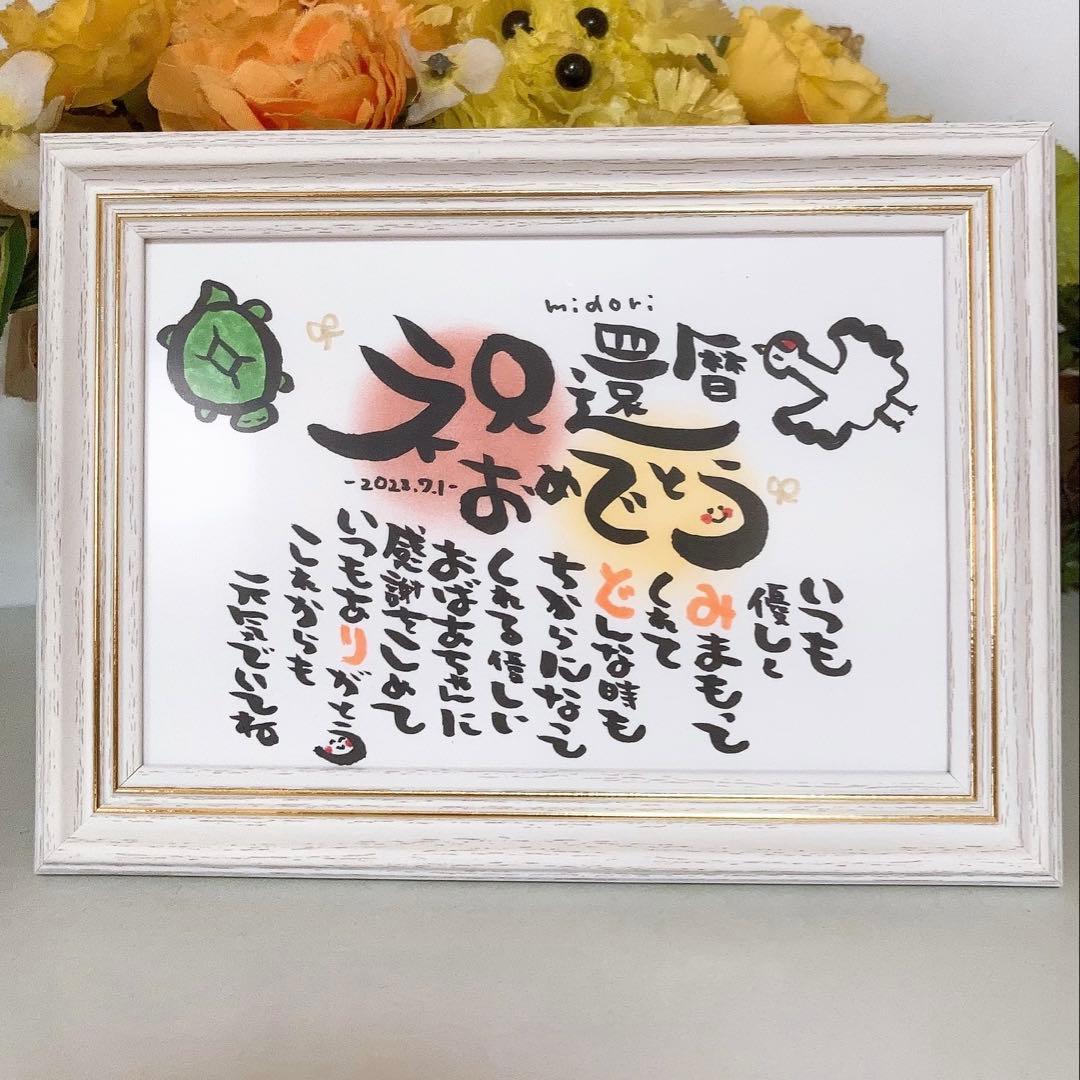 midori
祝 還暦
おめでとう
-2023.7.1-
いつも
優しく
みまもって
くれて
どんな時も
ちからになって
くれる優しい
おばあちゃんに
感謝をこめて
いつもありがとう
これからも
元気でいてね